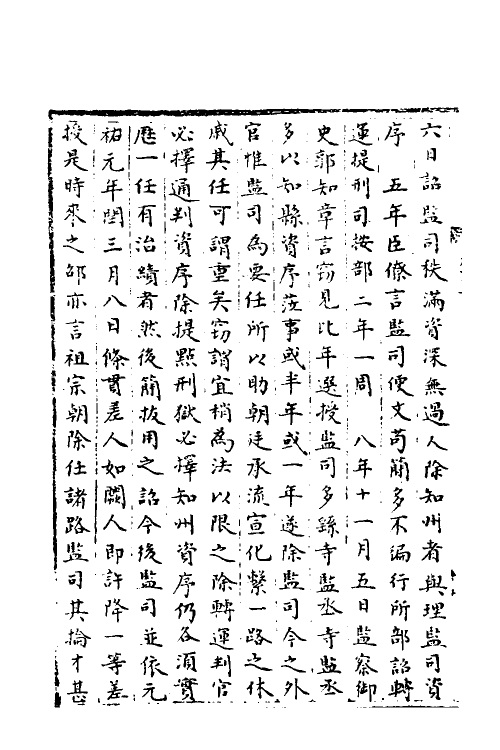 六日詔監司秩滿資深無過人除知州者與理監司資
序　五年臣僚言監司便文苟簡多不徧行所部詔轉
運提刑司按部二年一周　八年十一月五日監察御
史郭知章言竊見比年選授監司多繇寺監丞寺監丞
多以知縣資序莅事或半年或一年遂除監司今之外
官惟監司為要任所以助朝廷承流宣化繫一路之休
戚其任可謂重矣竊謂宜稍為法以限之除轉運判官
必擇通判資序除提點刑獄必擇知州資序仍各須實
歷一任有治績者然後簡拔用之詔今後監司並依元
祐元年閏三月八日條貫差人如闕人即許降一等差
授是時來之邵亦言祖宗朝除任諸路監司其掄才甚